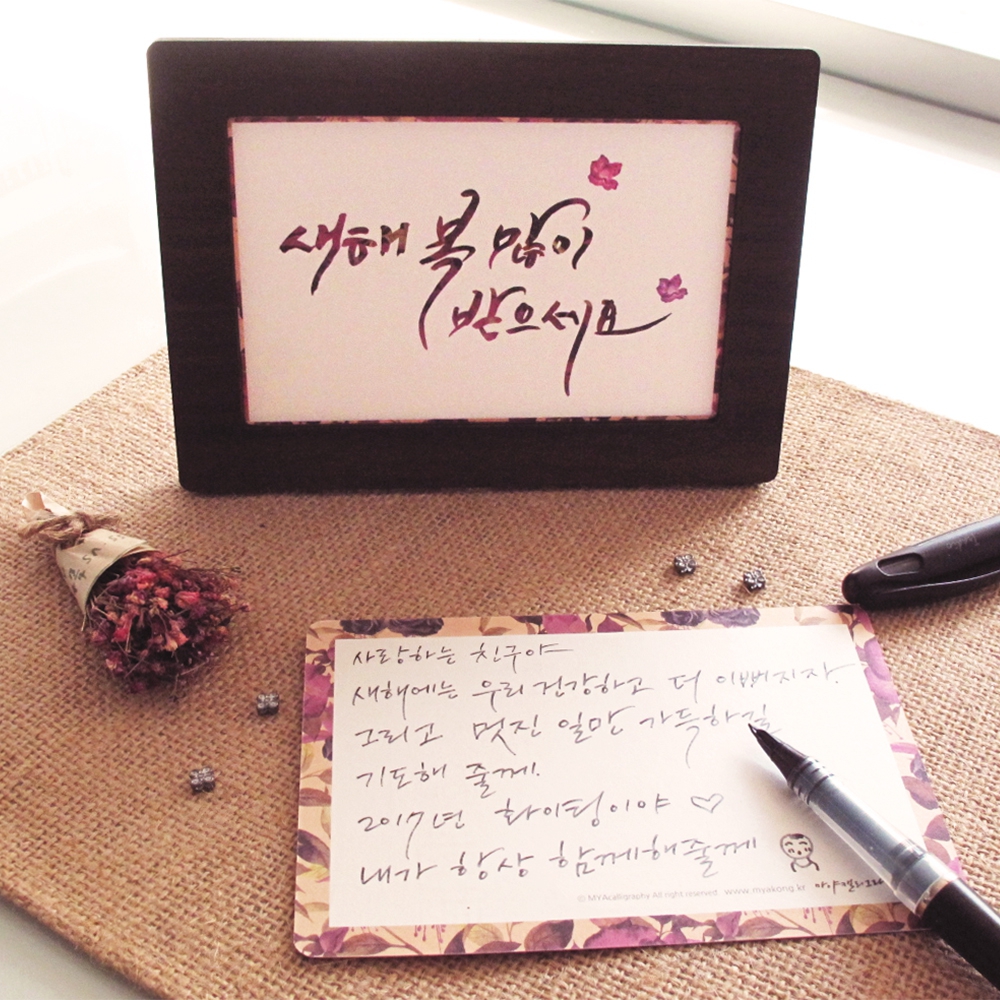 새해 복 많이
받으세요
사랑하는 친구야
새해에는 우리 건강하고 더 이뻐지자.
그리고 멋진 일만 가득하길
기도해 줄께.
2017년 화이팅이야 ♡
내가 항상 함께해줄께
© MYAcalligraphy All right reserved www.myakong.kr